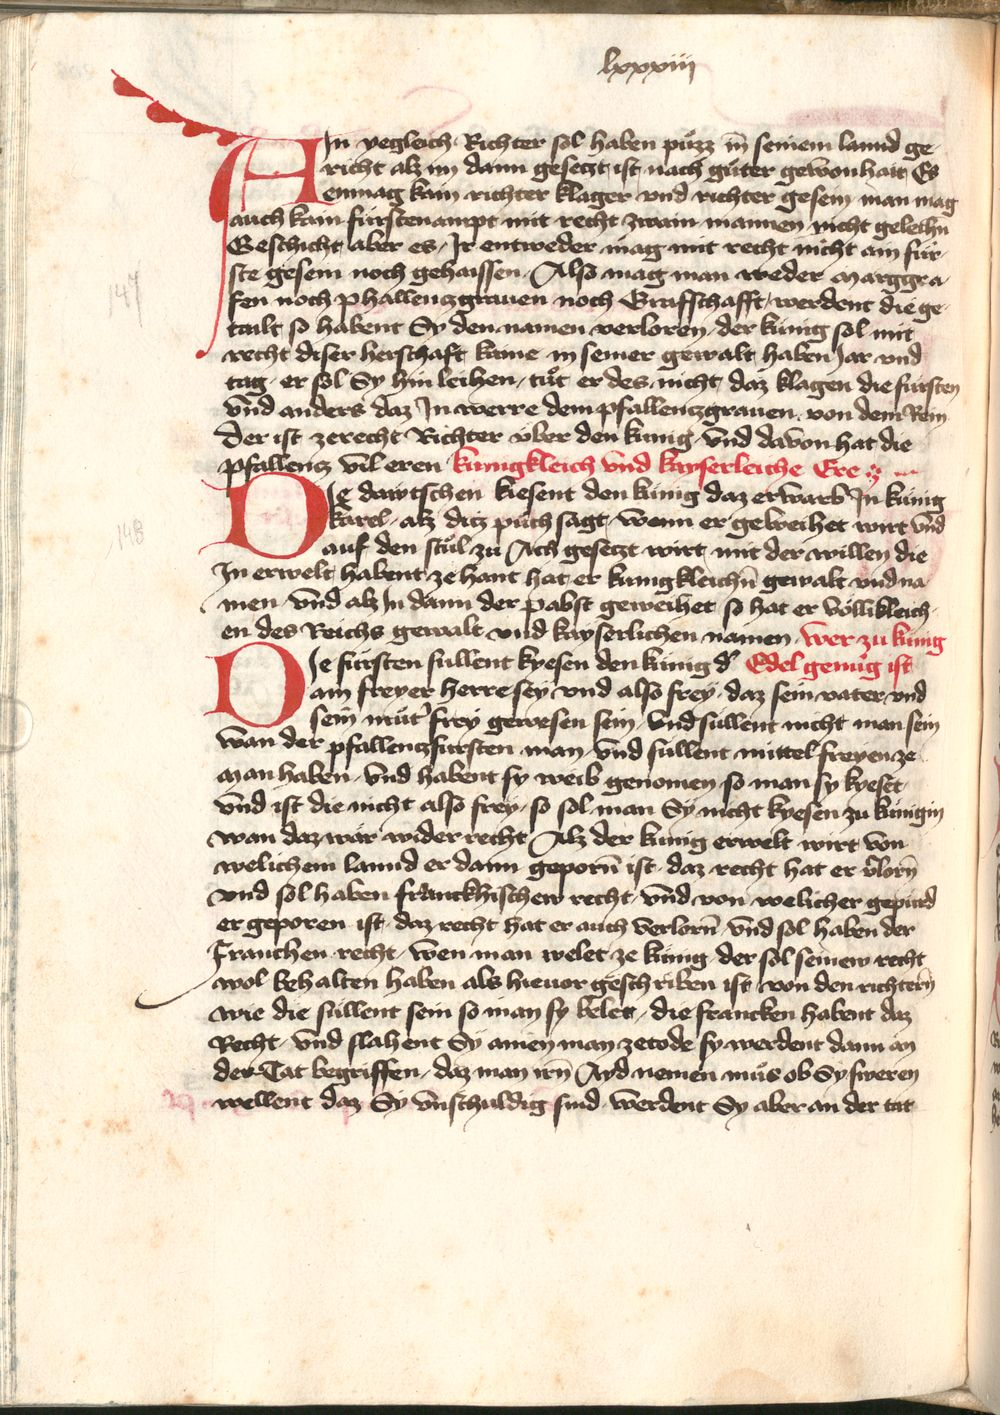 lxxxiiij
Ain yegleich Richter sol haben puͤzz in seinem lannd ge-
richt alz im dann gesetzt ist nach guter gewonhait Es
enmag kain richter klager vnd richter gesein man mag
auch kain furstenampt mit recht zwain mannen nicht geleihn
Geschicht aber es Ir entweder mag mit recht nicht ain für
ste gesein noch gehaissen Also mag man weder marggra
fen noch phallenczgrauen noch Graffschafft werdent die ge
tailt so habent Sy den namen verloren der künig sol mit
recht diser herschaft kaine in seiner gewalt haben Jar vnd
tag er sol Sy hin leihen tuͤt er des nicht daz klagen die fürsten
vnd anders daz In werre dem pfallenczgrauen von dem Rein
Der ist zerecht Richter über den künig vnd dauon hat die
pfallencz vil eren künigkleich vnd kayserleiche Ere
147
DIe dawtschen kiesent den künig daz erwarb In künig
karel alz ditz puch sagt wenn er geweihet wirt vnd
auf den stuͤl zu Ach gesetzt wirt mit der willen die
In erwelt habent ze hant hat er künigkleichn gewalt vnd na
men vnd alz In dann der pabst geweihet so hat er völlikleich
en des Reichs gewalt vnd kayserlichen namen wer zu künig
148
DIe fürsten süllent kyesen den künig d' Edel genuͤg ist
ain freyer herre sey vnd also frey daz sein vater vnd
sein muͤt' frey gewesen sein vnd süllent nicht man sein
wan der pfallenczfürsten man vnd süllent mittel freyen ze
man haben vnd habent sy weib genomen so man sy kyeset
vnd ist die nicht also frey so sol man Sy nicht kyesen zu künigin
wan daz wär wider recht Alz der künig erwelt wirt von
welichem lannd er dann geporn ist daz recht hat er v'lorn
vnd sol haben franckhischew recht vnd von welicher gepürd
er geporen ist daz recht hat er auch verlorn vnd sol haben der
Franchen recht wen man welet ze künig der sol seinew recht
wol behalten haben als hieuor geschriben ist von den richtern
wie die süllent sein so man sy welet die francken habent daz
Recht vnd slahent Sy ainen man zetode sy werdent dann an
der Tat begriffen daz man irn Ayd nemen muͤs ob Sy sweren
wellent daz Sy vnschuldig sind werdent Sy aber an der tat